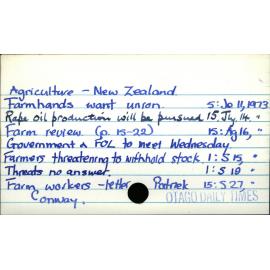 Agriculture - New Zealand
Farmhands want union. 5: Je 11, 1973
Rape oil production will be pursued 15. Jy. 14. "
Farm review (p. 15-22) 15: Ag 16, "
Government & FOL to meet Wednesday
Farmers threatening to withhold stock 1: S 15, "
Threats no answer. 1: S 19 "
Farm workers - letter Patrick 15: S 27, "
Conway.
OTAGO DAILY TIMES